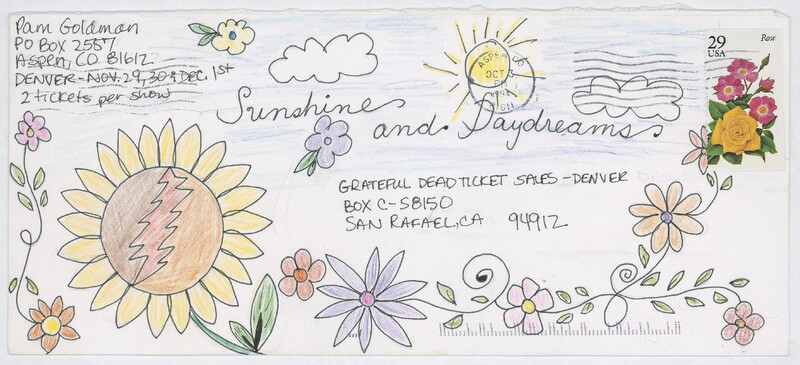 Pam Goldman
PO Box 2557
ASPEN, CO 81612
DENVER-NOV. 29, 30 & DEC. 1st
2 tickets per show
Sunshine
and Daydreams
ASPEN CO
OCT 3
PM
29
USA
Rose
GRATEFUL DEAD TICKET SALES - DENVER
BOX C-S8150
SAN RAFAEL, CA 94912